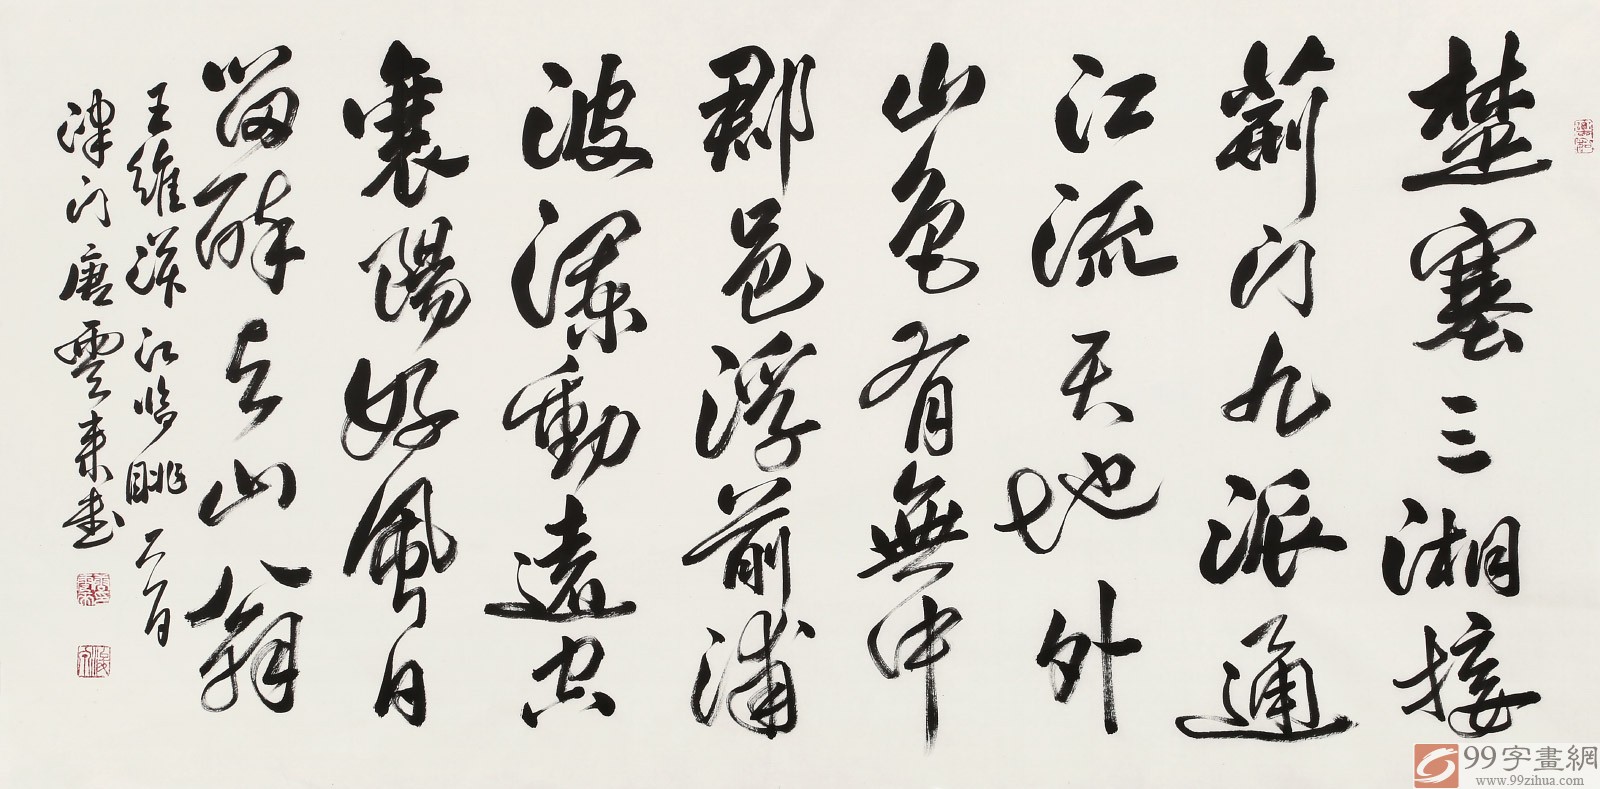 楚塞三湘接
荊门九派通
江流天地外
山色有無中
郡邑浮前浦
波瀾動遠空
襄陽好風日
留醉与山翁
王維漢江临眺一首
津门唐雲来書
99字畫網
www.99zihua.com